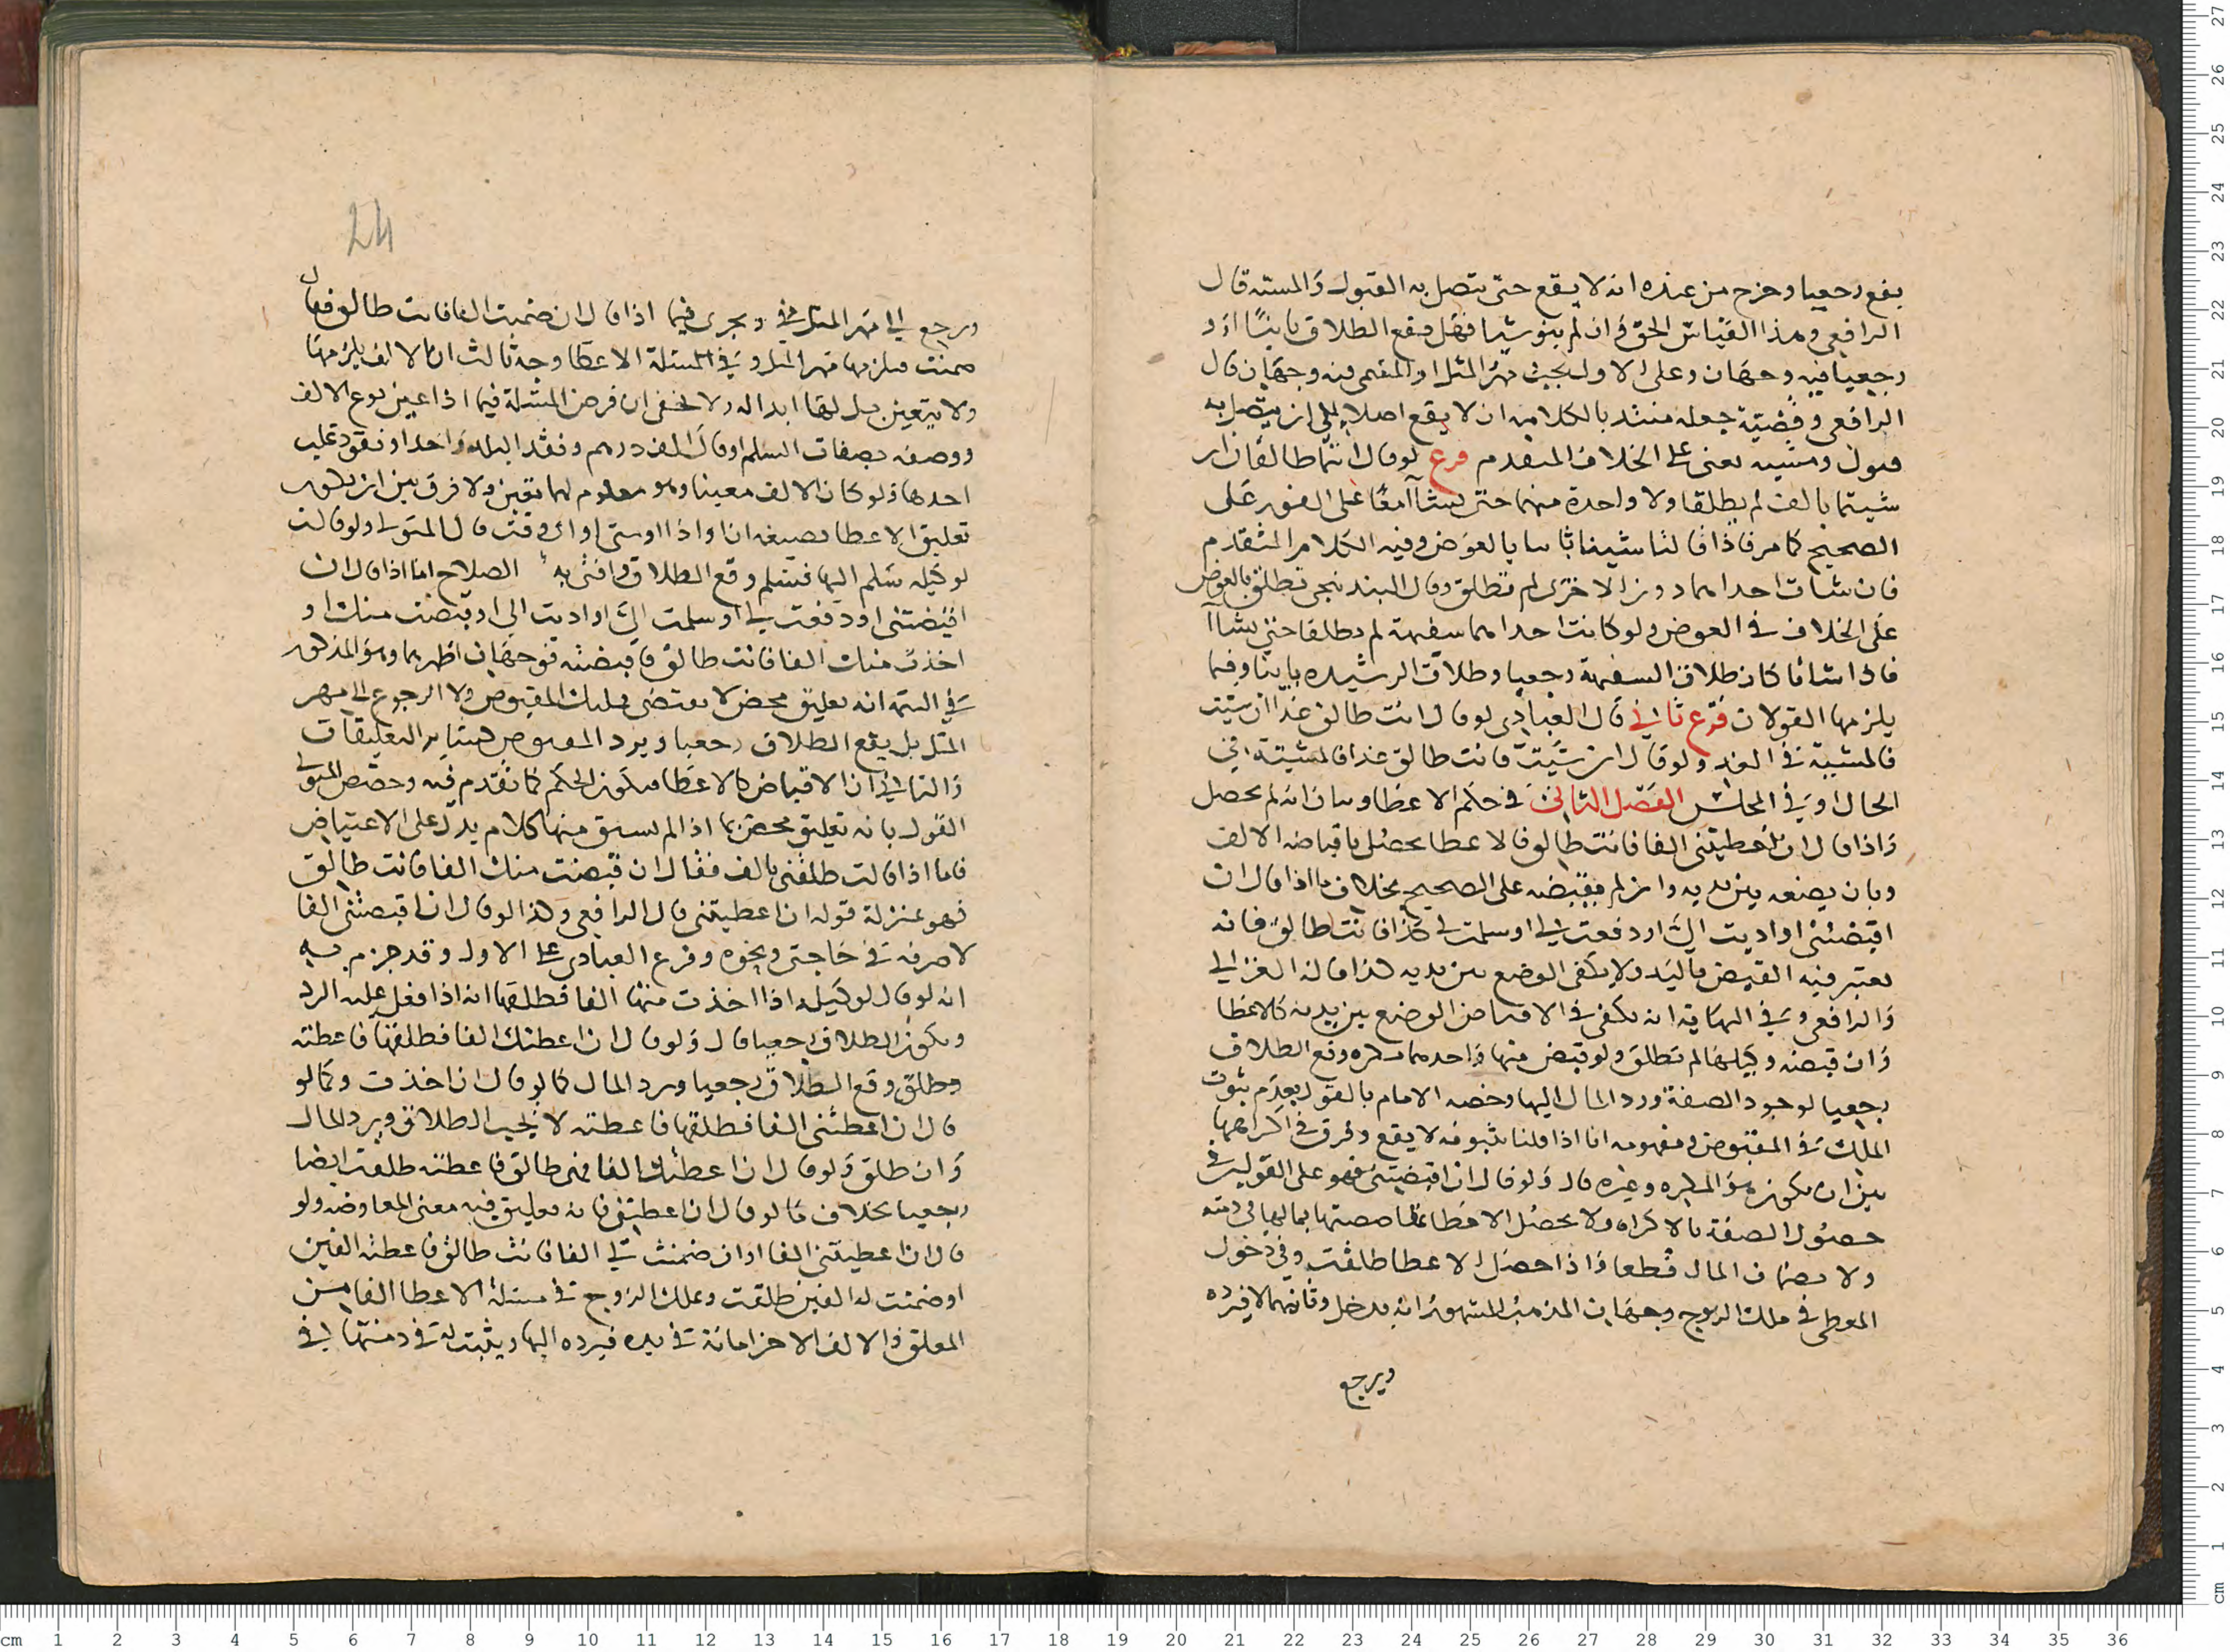 يقع رجعيا وخرج من عنده انه لا يقع حتى يتصل به القبول والمشيئة قال
الرافعي وهذا القياس الحق وان لم ينو شيا فهل يقع الطلاق باينا او
رجعيا فيه وجهان وعلى الاول يجب مهر المثل او المسمى فيه وجهان قال
الرافعي وقضية جعله مبتدا بالكلام به ان لا يقع اصلا الى ان يتصل به
قبول ومشيه يعنى على الخلاف المتقدم فرع لو قال انتما طالقان ان
شيتما بالف لم يطلقا ولا واحدة منهما حتى يشاآ معًا على الفور على
الصحيح كما مر فاذا قالتا شينا بانتا بالعوض وفيه الكلام المتقدم
فان شات احداهما دون الاخرى لم تطلق وقال البندنيجي تطلق بالعوض
على الخلاف في العوض ولو كانت احداهما سفيهة لم يطلقا حتى يشاآ
فاذا شاتا كان طلاق السفيهة رجعيا وطلاق الرشيده باينا وفيما
يلزمها القولان فرع ثاني قال العبادي لو قال انت طالق غدا ان شيت
فالمشيية في الغد ولو قال ان شيت فانت طالق غدا فالمشيئة في
الحال او في المجلس الفصل الثاني في حكم الاعطا وبيان انه لم يحصل
واذا قال ان اعطيتني الفا فانت طالق فالاعطا يحصل باقباضه الالف
وبان يضعه بين يديه وان لم يقبضه على الصحيح بخلاف ما اذا قال ان
اقبضتني او اديت الي او دفعت لي او سلمت لي كذا فانت طالق فانه
يعتبر فيه القبض باليد ولا يكفي الوضع بين يديه كذا قاله الغزالي
والرافعي وفي النهاية انه يكفي في الاقباض الوضع بين يديه كالاعطا
وان قبضه وكيلها لم تطلق ولو قبض منها واحدهما مكره وقع الطلاق
رجعيا لوجود الصفة ورد المال اليها وخصه الامام بالقول بعدم ثبوت
الملك في المقبوض ومفهومه انا اذا قلنا بثبوته لا يقع وفرق في اكراهها
بين ان يكون هو المكره وغيره قال ولو قال ان اقبضتني فهو على القولين في
حصول الصفة بالاكراه ولا يحصل الاعطا بمقاصصتها بما لها في ذمته
ولا بضمان المال قطعا واذا حصل الاعطا طلقت وفي دخول
المعطى في ملك الزوج وجهان المذهب المشهور انه يدخل وثانيهما لا فيرده
ويرجع
24
ويرجع الى مهر المثل في ويجرى فيما اذا قال ان ضمنت الفا فانت طالق فقال
ضمنت فيلزمها مهر المثل وفي المسئلة الاعطا وجه ثالث ان الالف يلزمها
ولا يتعين بل لها ابداله ولا يخفى ان فرض المسئلة فيما اذا عين نوع الالف
ووصفه بصفات السلم او قال الف درهم ونقد البلد واحد او نقود غلب
احدها فلو كان الالف معينا وهو معلوم لهما تعين ولا فرق بين ان يكون
تعليق الاعطا بصيغه ان او اذا او متى او اي وقت قال المتولي ولو قالت
لوكيله سلم اليها فتسلم وقع الطلاق وافتى به الصلاح اما اذا قال ان
اقبضتني او دفعت لي او سلمت الي او اديت الي او قبضت منك او
اخذت منك الفا فانت طالق فاقبضته فوجهان اظهرهما وهو المذكور
في التتمة انه تعليق محض لا يقتضى تمليك المقبوض ولا الرجوع الى مهر
المثل بل يقع الطلاق رجعيا ويرد المقبوض كساير التعليقات
والثاني ان الاقباض كالاعطا فيكون الحكم كما تقدم فيه وخصص المتولي
القول بانه تعليق محض بما اذا لم يسبق منها كلام يدل على الاعتياض
فاما اذا قالت طلقني بالف فقال ان قبضت منك الفا فانت طالق
فهو بمنزلة قوله ان اعطيتني قال الرافعي وكذا لو قال ان اقبضتني الفا
لاصرفه في حاجتي ونحوه وفرع العبادي على الاول وقد جزم به
انه لو قال لوكيله اذا اخذت منها الفا فطلقها انه اذا فعل عليه الرد
ويكون الطلاق رجعيا قال ولو قال ان اعطتك الفا فطلقها فاعطته
وطلق وقع الطلاق رجعيا ويرد المال كما لو قال ان اخذت وكما لو
قال ان اعطتني الفا فطلقها فاعطته لا يجب الطلاق ويرد المال
وان طلق ولو قال ان اعطتك الفا فهى طالق فاعطته طلقت ايضا
رجعيا بخلاف ما لو قال ان اعطيتني فانه تعليق فيه معنى المعاوضه ولو
قال ان اعطيتني الفا او ان ضمنت لي الفا فانت طالق فاعطته الفين
او ضمنت له الفين طلقت وملك الزوج في مسئلة الاعطا الفا من
المعلق والالف الاخر امانة في يده فيرده اليها ويثبت له في ذمتها في